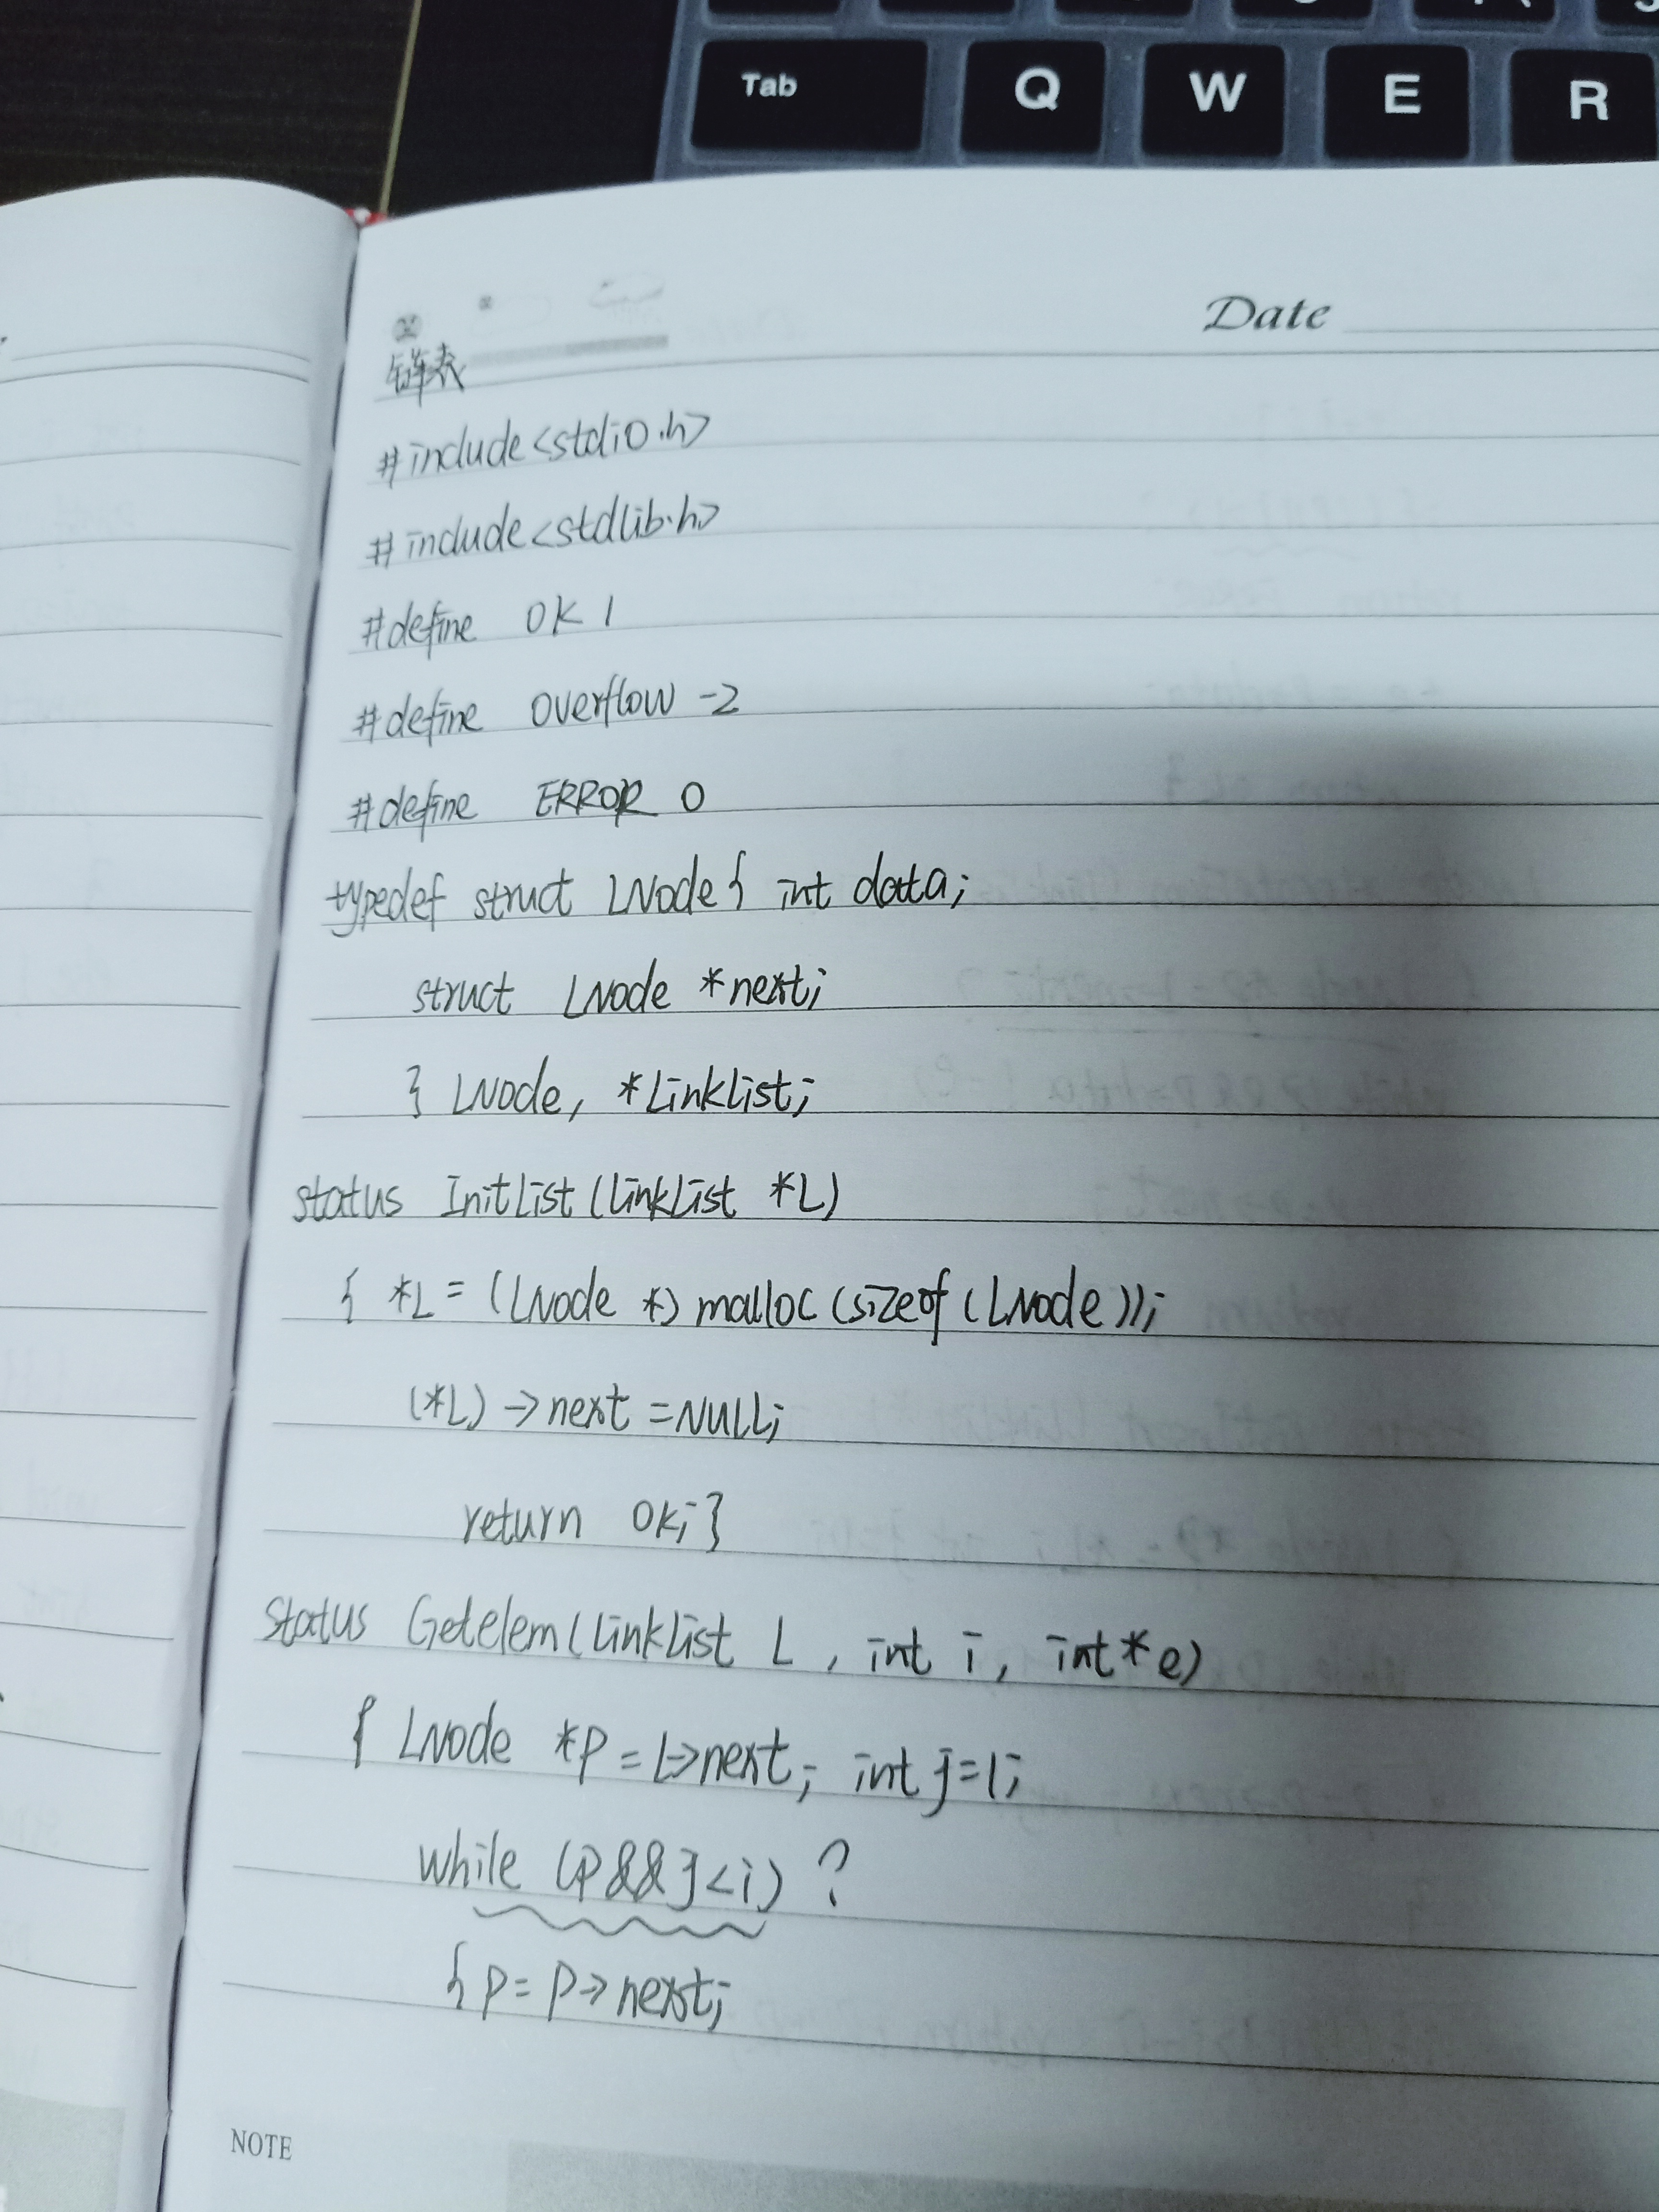 Tab Q W E R
Date
链表
#include<stdio.h>
#include<stdlib.h>
#define OK 1
#define overflow -2
#define ERROR 0
typedef struct LNode{ int data;
struct LNode *next;
} LNode, *LinkList;
status InitList(LinkList *L)
{ *L = (LNode *) malloc (sizeof (LNode));
(*L) -> next = NULL;
return OK;}
status Getelem(LinkList L , int i, int*e)
{ LNode *p = L->next; int j=1;
while (p&&j<i) ?
{p= p-> next;
NOTE